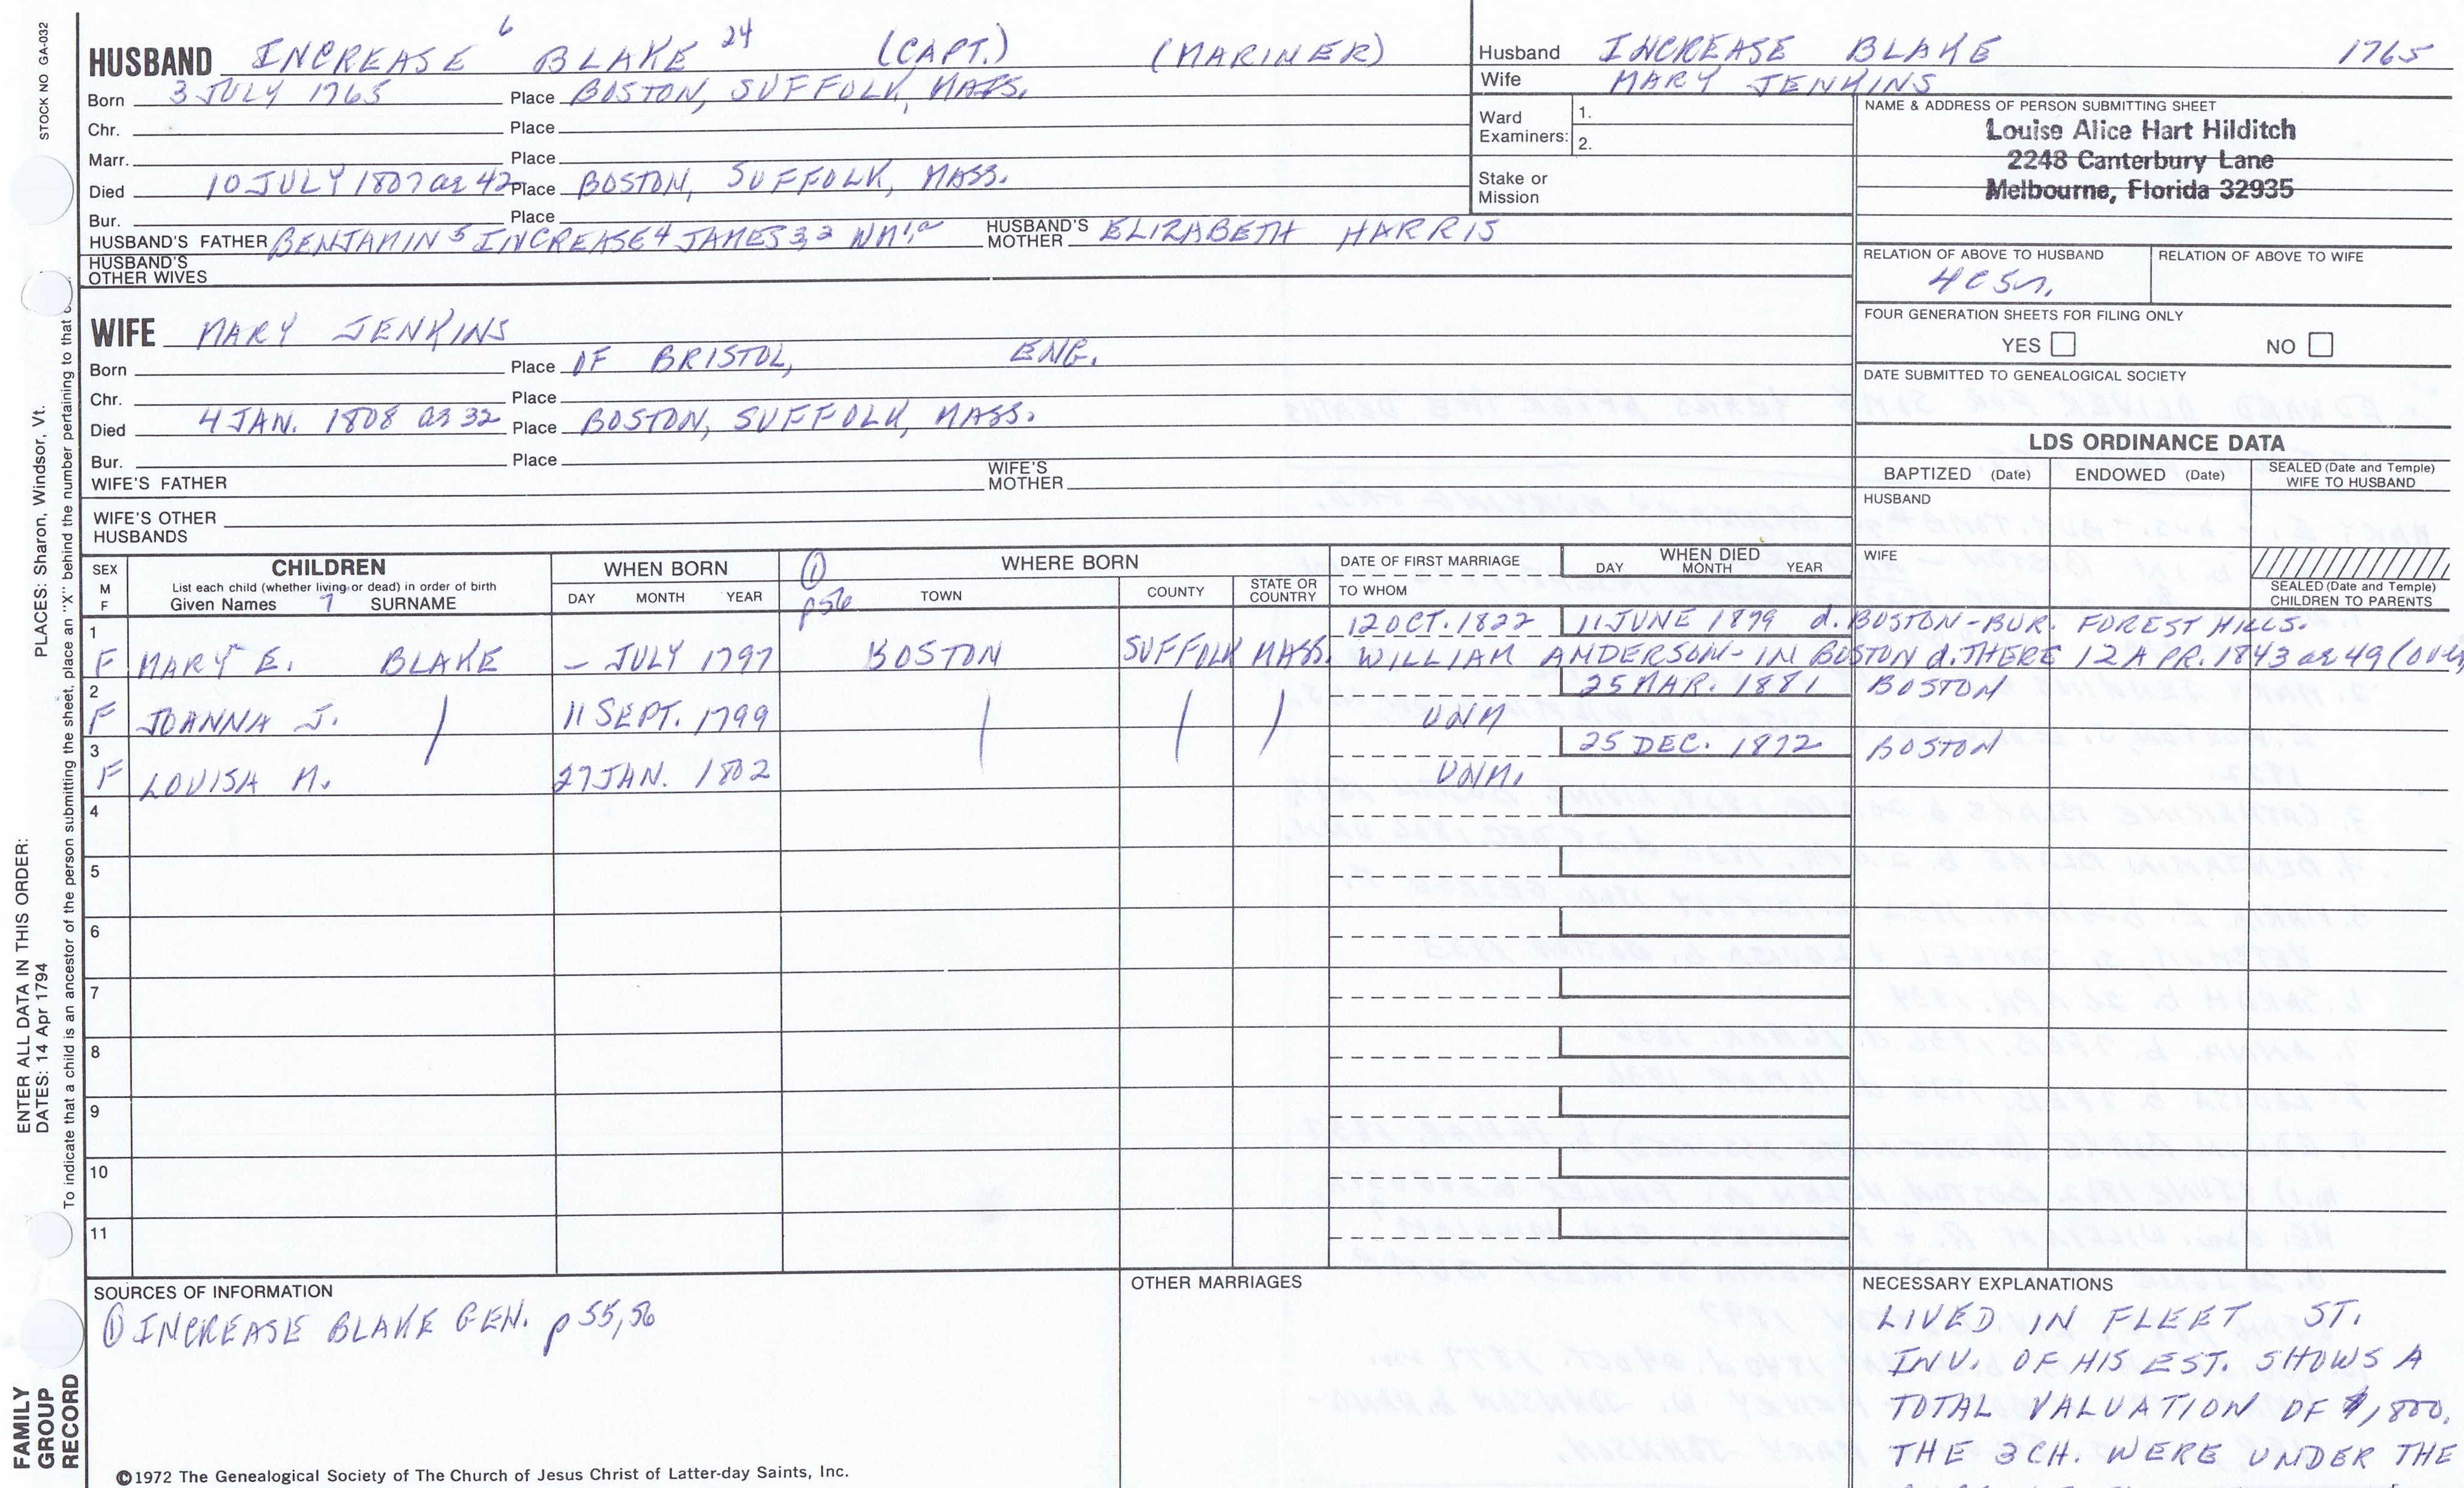 STOCK NO GA-032
HUSBAND INCREASE 6 BLAKE 24 (CAPT.) (MARINER)
Born 3 JULY 1765 Place BOSTON, SUFFOLK, MASS.
Chr. Place
Marr. Place
Died 10 JULY 1807 ae 42 Place BOSTON, SUFFOLK, MASS.
Bur. Place
HUSBAND'S FATHER BENJAMIN 5 INCREASE 4 JAMES 3,2 WM 1 HUSBAND'S MOTHER ELIZABETH HARRIS
HUSBAND'S OTHER WIVES
Husband INCREASE BLAKE 1765
Wife MARY JENKINS
Ward Examiners: 1.
2.
Stake or Mission
NAME & ADDRESS OF PERSON SUBMITTING SHEET
Louise Alice Hart Hilditch
2248 Canterbury Lane
Melbourne, Florida 32935
RELATION OF ABOVE TO HUSBAND RELATION OF ABOVE TO WIFE
4C5n.
FOUR GENERATION SHEETS FOR FILING ONLY
YES NO
DATE SUBMITTED TO GENEALOGICAL SOCIETY
WIFE MARY JENKINS
Born Place OF BRISTOL, ENG.
Chr. Place
Died 4 JAN. 1808 ae 32 Place BOSTON, SUFFOLK, MASS.
Bur. Place
WIFE'S FATHER WIFE'S MOTHER
WIFE'S OTHER HUSBANDS
LDS ORDINANCE DATA
BAPTIZED (Date) ENDOWED (Date) SEALED (Date and Temple) WIFE TO HUSBAND
HUSBAND
WIFE
SEALED (Date and Temple) CHILDREN TO PARENTS
SEX M F CHILDREN WHEN BORN ① WHERE BORN DATE OF FIRST MARRIAGE WHEN DIED
List each child (whether living or dead) in order of birth
Given Names 7 SURNAME DAY MONTH YEAR p56 TOWN COUNTY STATE OR COUNTRY TO WHOM DAY MONTH YEAR
1 12 OCT. 1822 11 JUNE 1879 d. BOSTON-BUR. FOREST HILLS.
F MARY E. BLAKE – JULY 1797 BOSTON SUFFOLK MASS. WILLIAM ANDERSON- IN BOSTON d. THERE 12 APR. 1843 ae 49 (over
2 25 MAR. 1881 BOSTON
F JOANNA J. | 11 SEPT. 1799 | | | UNM
3 25 DEC. 1872 BOSTON
F LOUISA M. 27 JAN. 1802 UNM.
4
5
6
7
8
9
10
11
SOURCES OF INFORMATION
① INCREASE BLAKE GEN. p 55,56
OTHER MARRIAGES
NECESSARY EXPLANATIONS
LIVED IN FLEET ST.
INV. OF HIS EST. SHOWS A
TOTAL VALUATION OF $1,800.
THE 3 CH. WERE UNDER THE
©1972 The Genealogical Society of The Church of Jesus Christ of Latter-day Saints, Inc.
FAMILY GROUP RECORD
ENTER ALL DATA IN THIS ORDER:
DATES: 14 Apr 1794
PLACES: Sharon, Windsor, Vt.
To indicate that a child is an ancestor of the person submitting the sheet, place an "X" behind the number pertaining to that